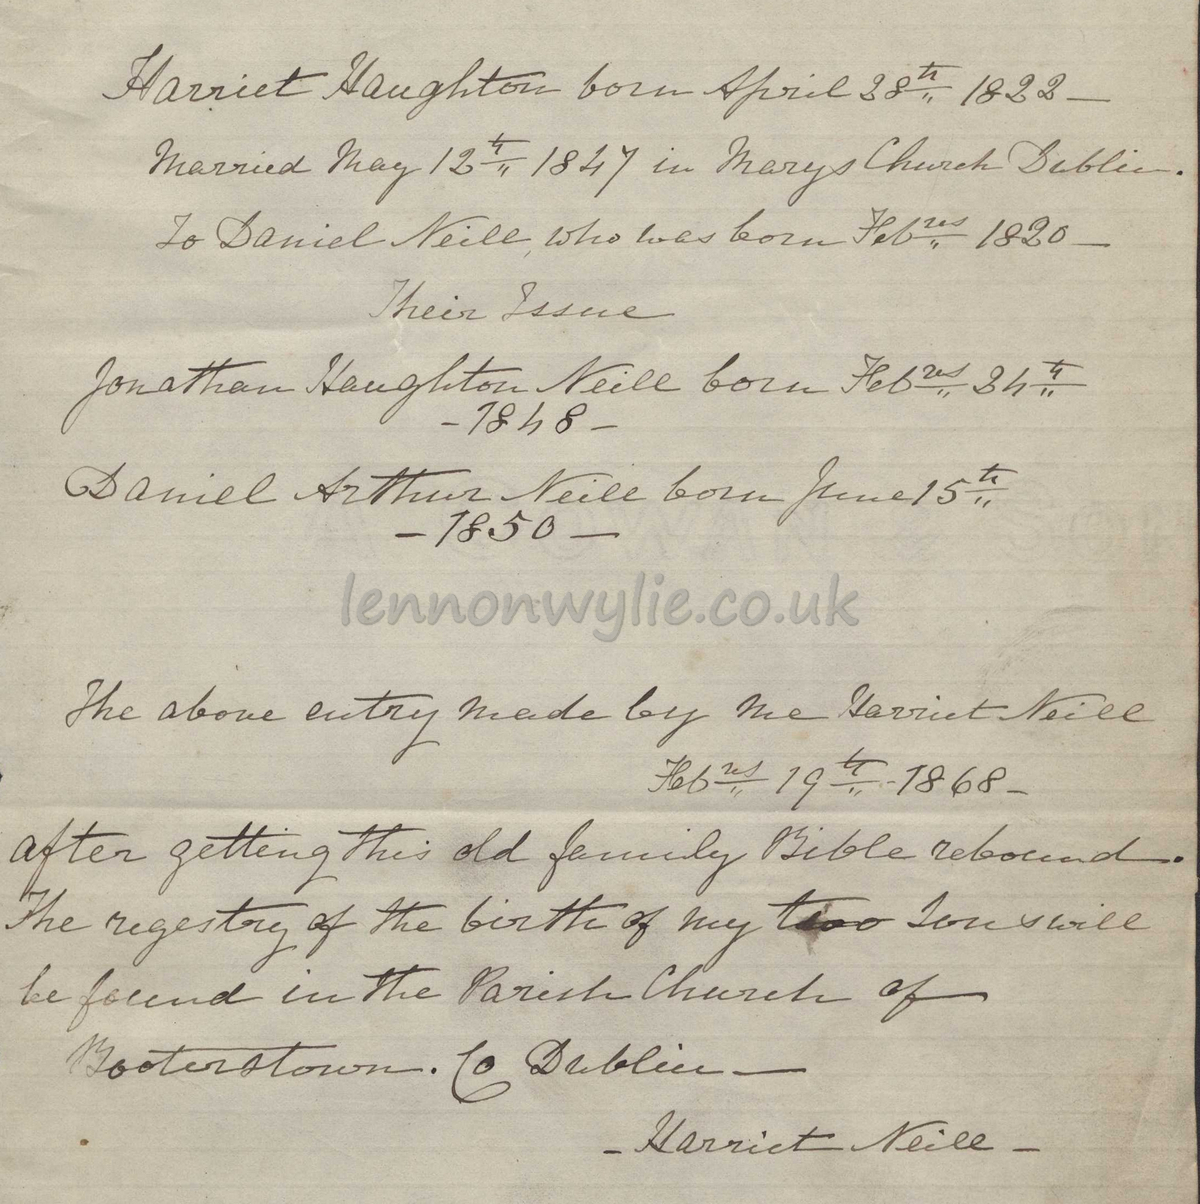 Harriet Haughton born April 28th 1822 —
Married May 12th 1847 in Marys Church Dublin.
To Daniel Neill, who was born Feb 1820 —
Their Issue
Jonathan Haughton Neill born Feb 24th
- 1848 -
Daniel Arthur Neill born June 15th
- 1850 —
lennonwylie.co.uk
The above entry made by me Harriet Neill
Feb 19th - 1868 -
after getting this old family Bible rebound.
The regestry of the birth of my two Sons will
be found in the Parish Church of
Booterstown. Co Dublin —
- Harriet Neill -